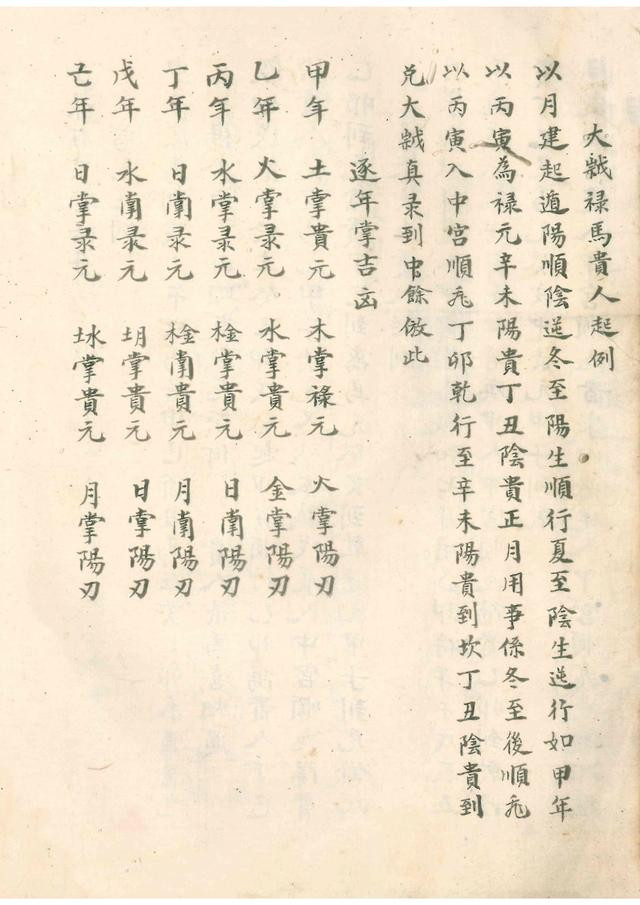 大戢禄馬貴人起例
以月建起遁陽順陰逆冬至陽生順行夏至陰生逆行如甲年
以丙寅為禄元辛未陽貴丁丑陰貴正月用事係冬至後順飛
以丙寅入中宮順飛丁卯乾行至辛未陽貴到坎丁丑陰貴到
兑大戢真录到中餘倣此
逐年掌吉凶
甲年 土掌貴元 木掌禄元 火掌陽刃
乙年 火掌录元 水掌貴元 金掌陽刃
丙年 水掌录元 金木掌貴元 日掌陽刃
丁年 日掌录元 金木掌貴元 月掌陽刃
戊年 水掌录元 土月掌貴元 日掌陽刃
己年 日掌录元 土水掌貴元 月掌陽刃